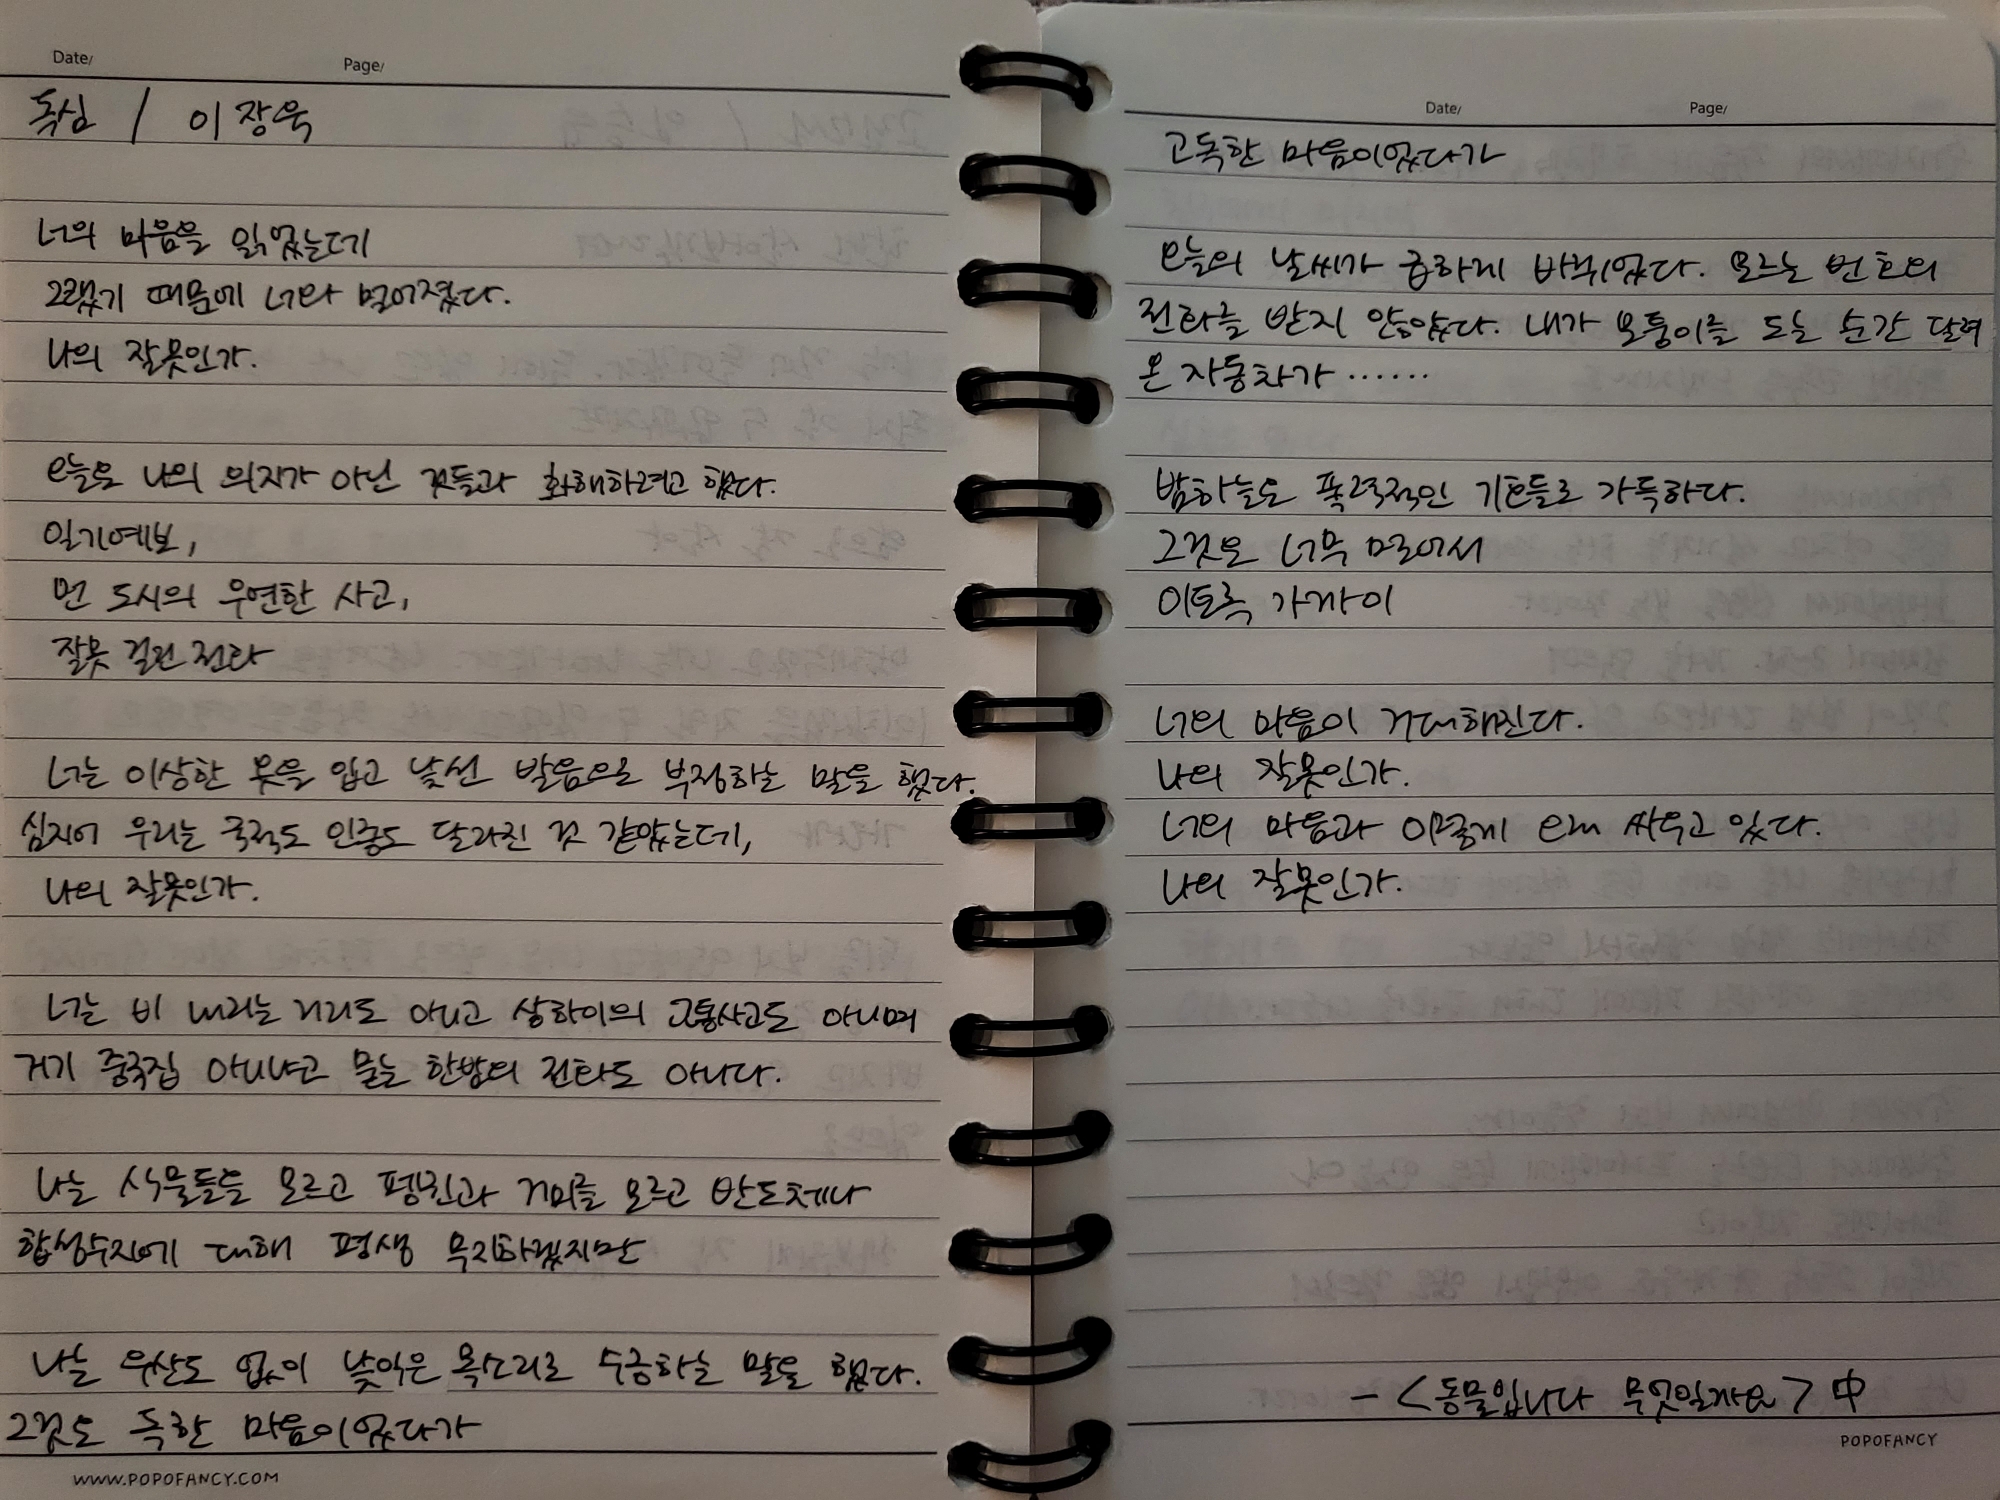 Date/
Page/
독심 / 이장욱
너의 마음을 읽었는데
그랬기 때문에 너와 멀어졌다.
나의 잘못인가.
오늘은 나의 의지가 아닌 것들과 화해하려고 했다.
일기예보,
먼 도시의 우연한 사고,
잘못 걸린 전화
너는 이상한 옷을 입고 낯선 발음으로 부정하는 말을 했다.
심지어 우리는 국적도 인종도 달라진 것 같았는데,
나의 잘못인가.
너는 비 내리는 거리도 아니고 상하이의 교통사고도 아니며
거기 중국집 아니냐고 묻는 한밤의 전화도 아니다.
나는 식물들을 모르고 펭귄과 거미를 모르고 반도체나
합성수지에 대해 평생 무지하겠지만
나는 우산도 없이 낯익은 목소리로 수긍하는 말을 했다.
그것도 독한 마음이었다가
WWW.POPOFANCY.COM
Date/
Page/
고독한 마음이었다가
오늘의 날씨가 급하게 바뀌었다. 모르는 번호의
전화를 받지 않았다. 내가 모퉁이를 도는 순간 달려
온 자동차가 ……
밤하늘은 폭력적인 기호들로 가득하다.
그것은 너무 멀어서
이토록 가까이
너의 마음이 거대해진다.
나의 잘못인가.
너의 마음과 이렇게 오래 싸우고 있다.
나의 잘못인가.
- <동물입니다 무엇일까요> 中
POPOFANCY